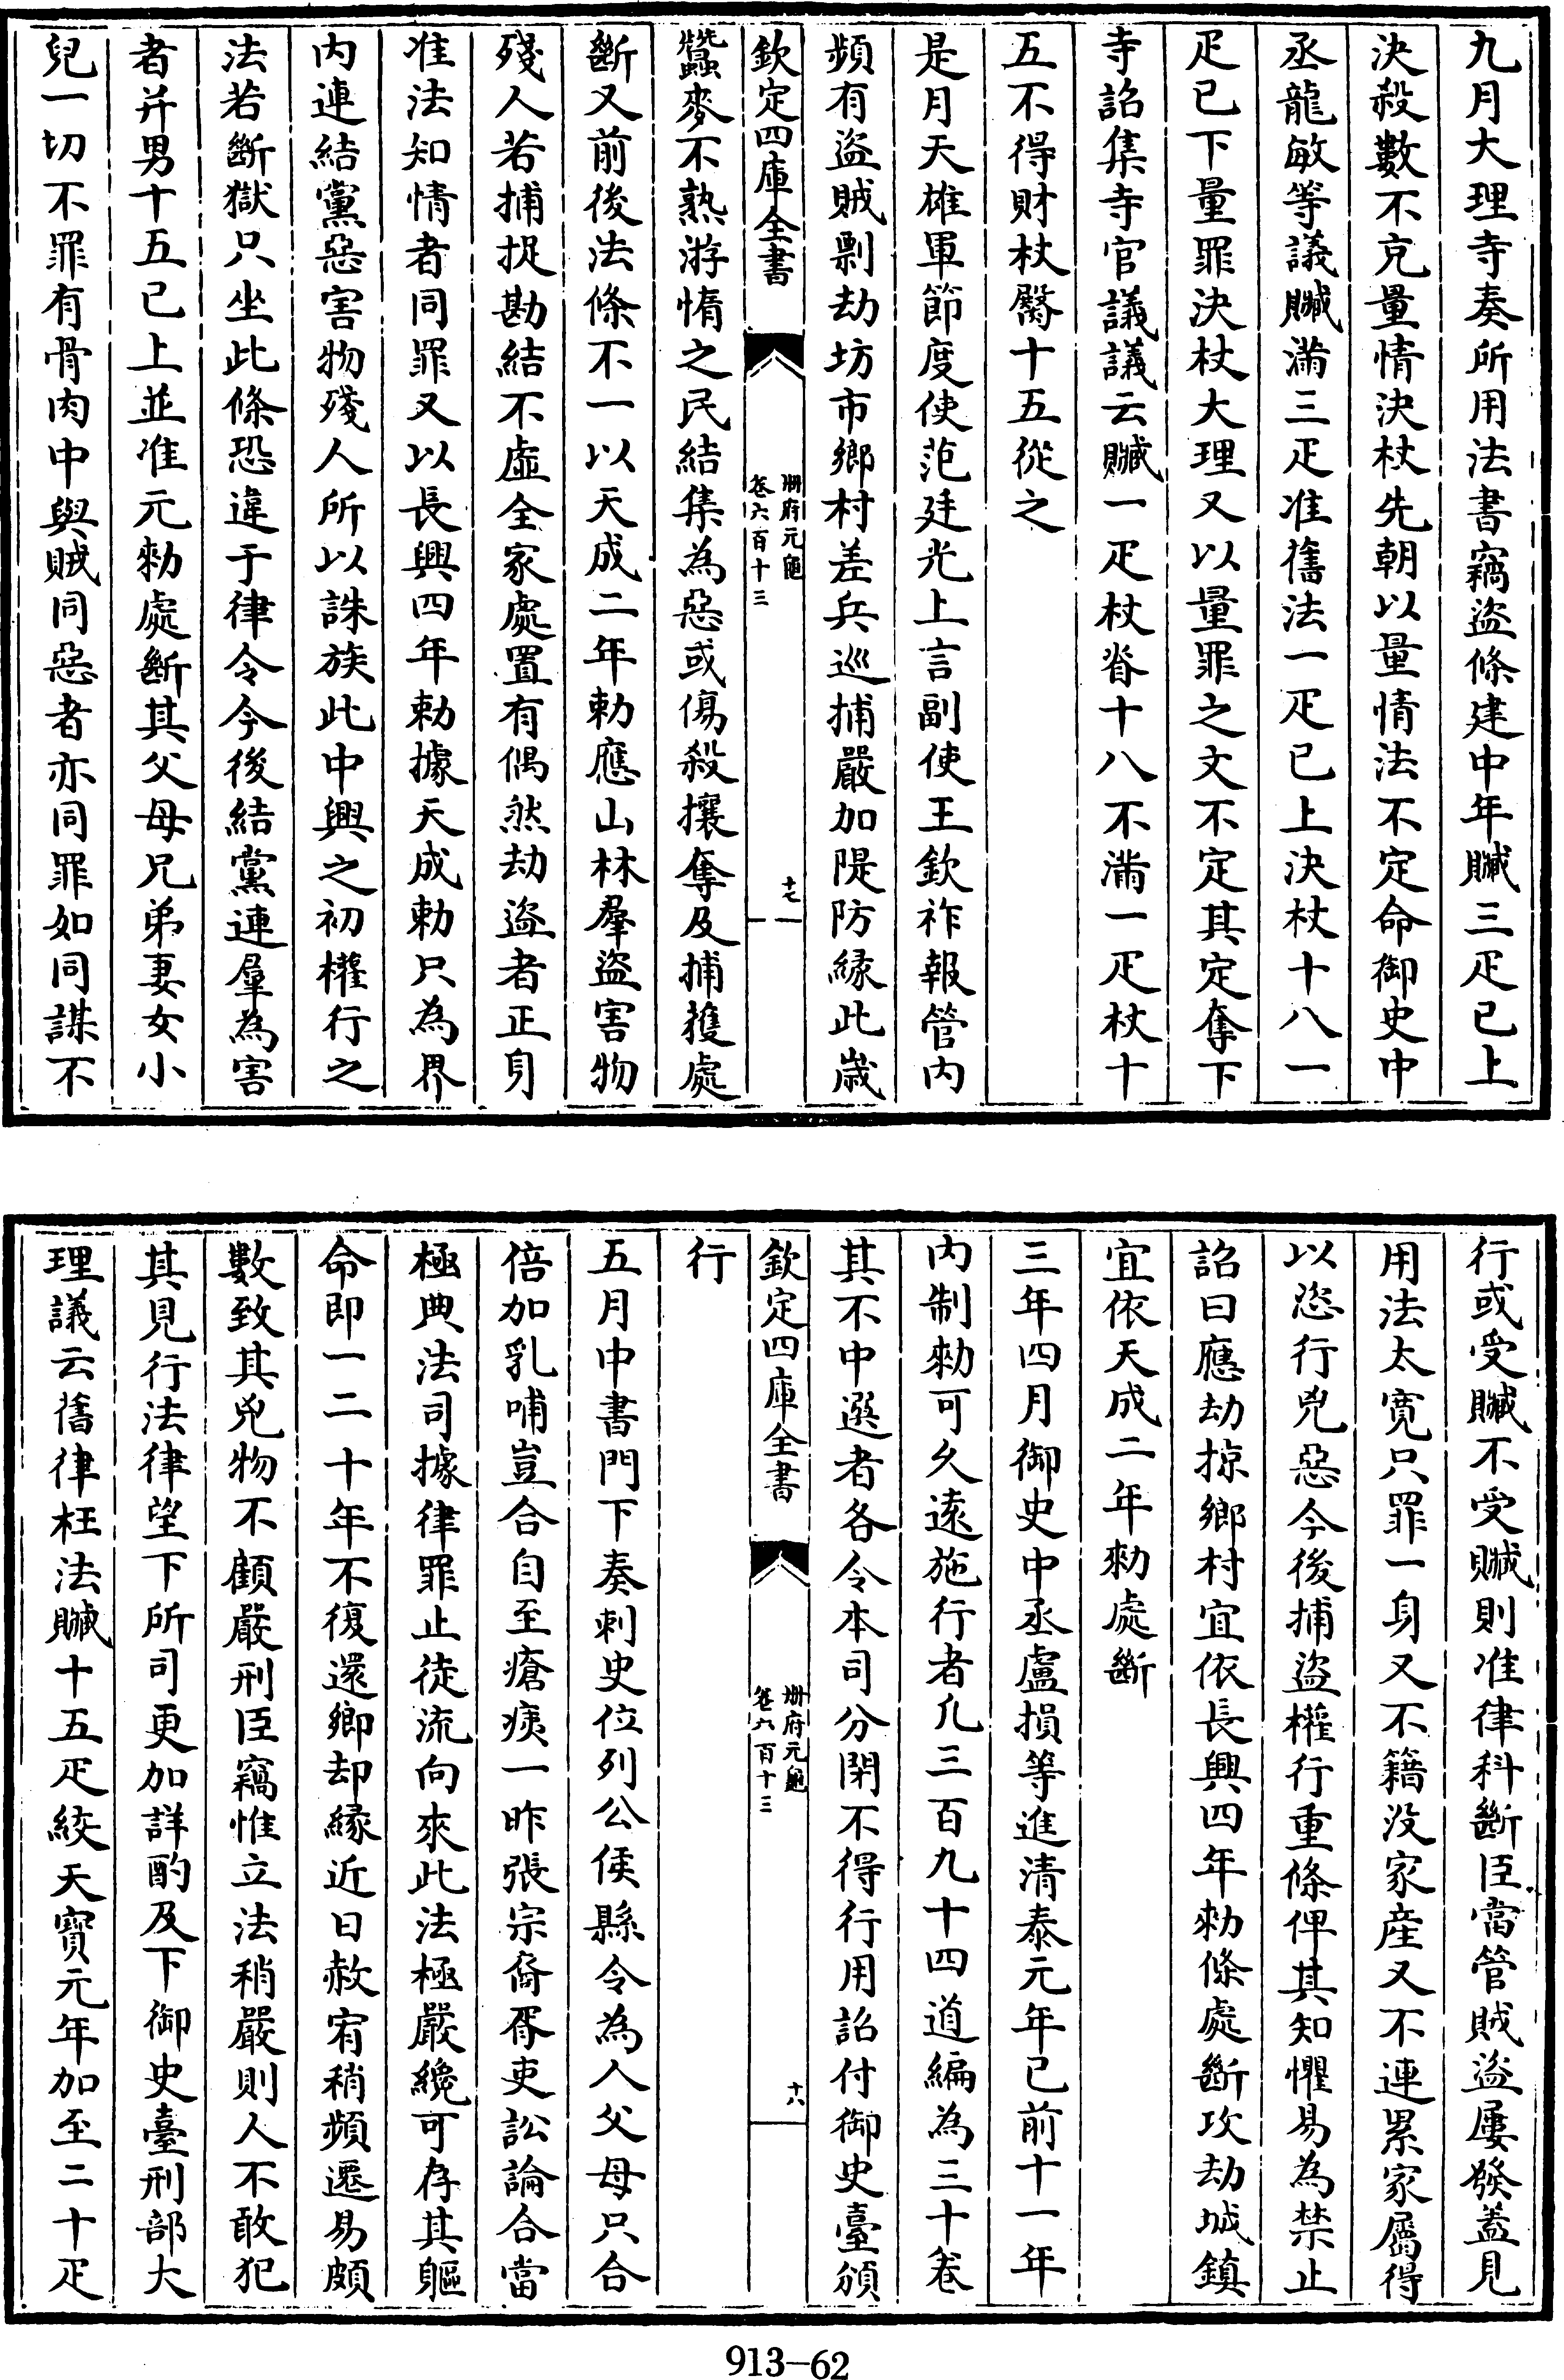 九月大理寺奏所用法書竊盜條建中年贓三疋已上
決殺數不充量情決杖先朝以量情法不定命御史中
丞龍敏等議贓滿三疋准舊法一疋已上決杖十八一
疋已下量罪決杖大理又以量罪之文不定其定奪下
寺詔集寺官議議云贓一疋杖脊十八不滿一疋杖十
五不得財杖臀十五從之
是月天雄軍節度使范廷光上言副使王欽祚報管内
頻有盜賊剽劫坊市鄉村差兵巡捕嚴加隄防緣此歲
欽定四庫全書
冊府元龜
卷六百十三
十七
蠶麥不熟游惰之民結集為惡或傷殺攘奪及捕獲處
斷又前後法條不一以天成二年勅應山林羣盜害物
殘人若捕捉勘結不虛全家處置有偶然劫盜者正身
准法知情者同罪又以長興四年勅據天成勅只為界
内連結黨惡害物殘人所以誅族此中興之初權行之
法若斷獄只坐此條恐違于律令今後結黨連羣為害
者并男十五已上並准元勅處斷其父母兄弟妻女小
兒一切不罪有骨肉中與賊同惡者亦同罪如同謀不
行或受贓不受贓則准律科斷臣當管賊盜屢發蓋見
用法太寬只罪一身又不籍没家産又不連累家屬得
以恣行兇惡今後捕盜權行重條俾其知懼易為禁止
詔曰應劫掠鄉村宜依長興四年勅條處斷攻劫城鎮
宜依天成二年勅處斷
三年四月御史中丞盧損等進清泰元年已前十一年
内制勅可久遠施行者凢三百九十四道編為三十卷
其不中選者各令本司分閑不得行用詔付御史臺頒
欽定四庫全書
冊府元龜
卷六百十三
十八
行
五月中書門下奏刺史位列公侯縣令為人父母只合
倍加乳哺豈合自至瘡痍一昨張宗裔胥吏訟論合當
極典法司據律罪止徒流向來此法極嚴纔可存其軀
命即一二十年不復還鄉却緣近日赦宥稍頻遷易頗
數致其兇物不顧嚴刑臣竊惟立法稍嚴則人不敢犯
其見行法律望下所司更加詳酌及下御史臺刑部大
理議云舊律枉法贓十五疋絞天寶元年加至二十疋
913-62